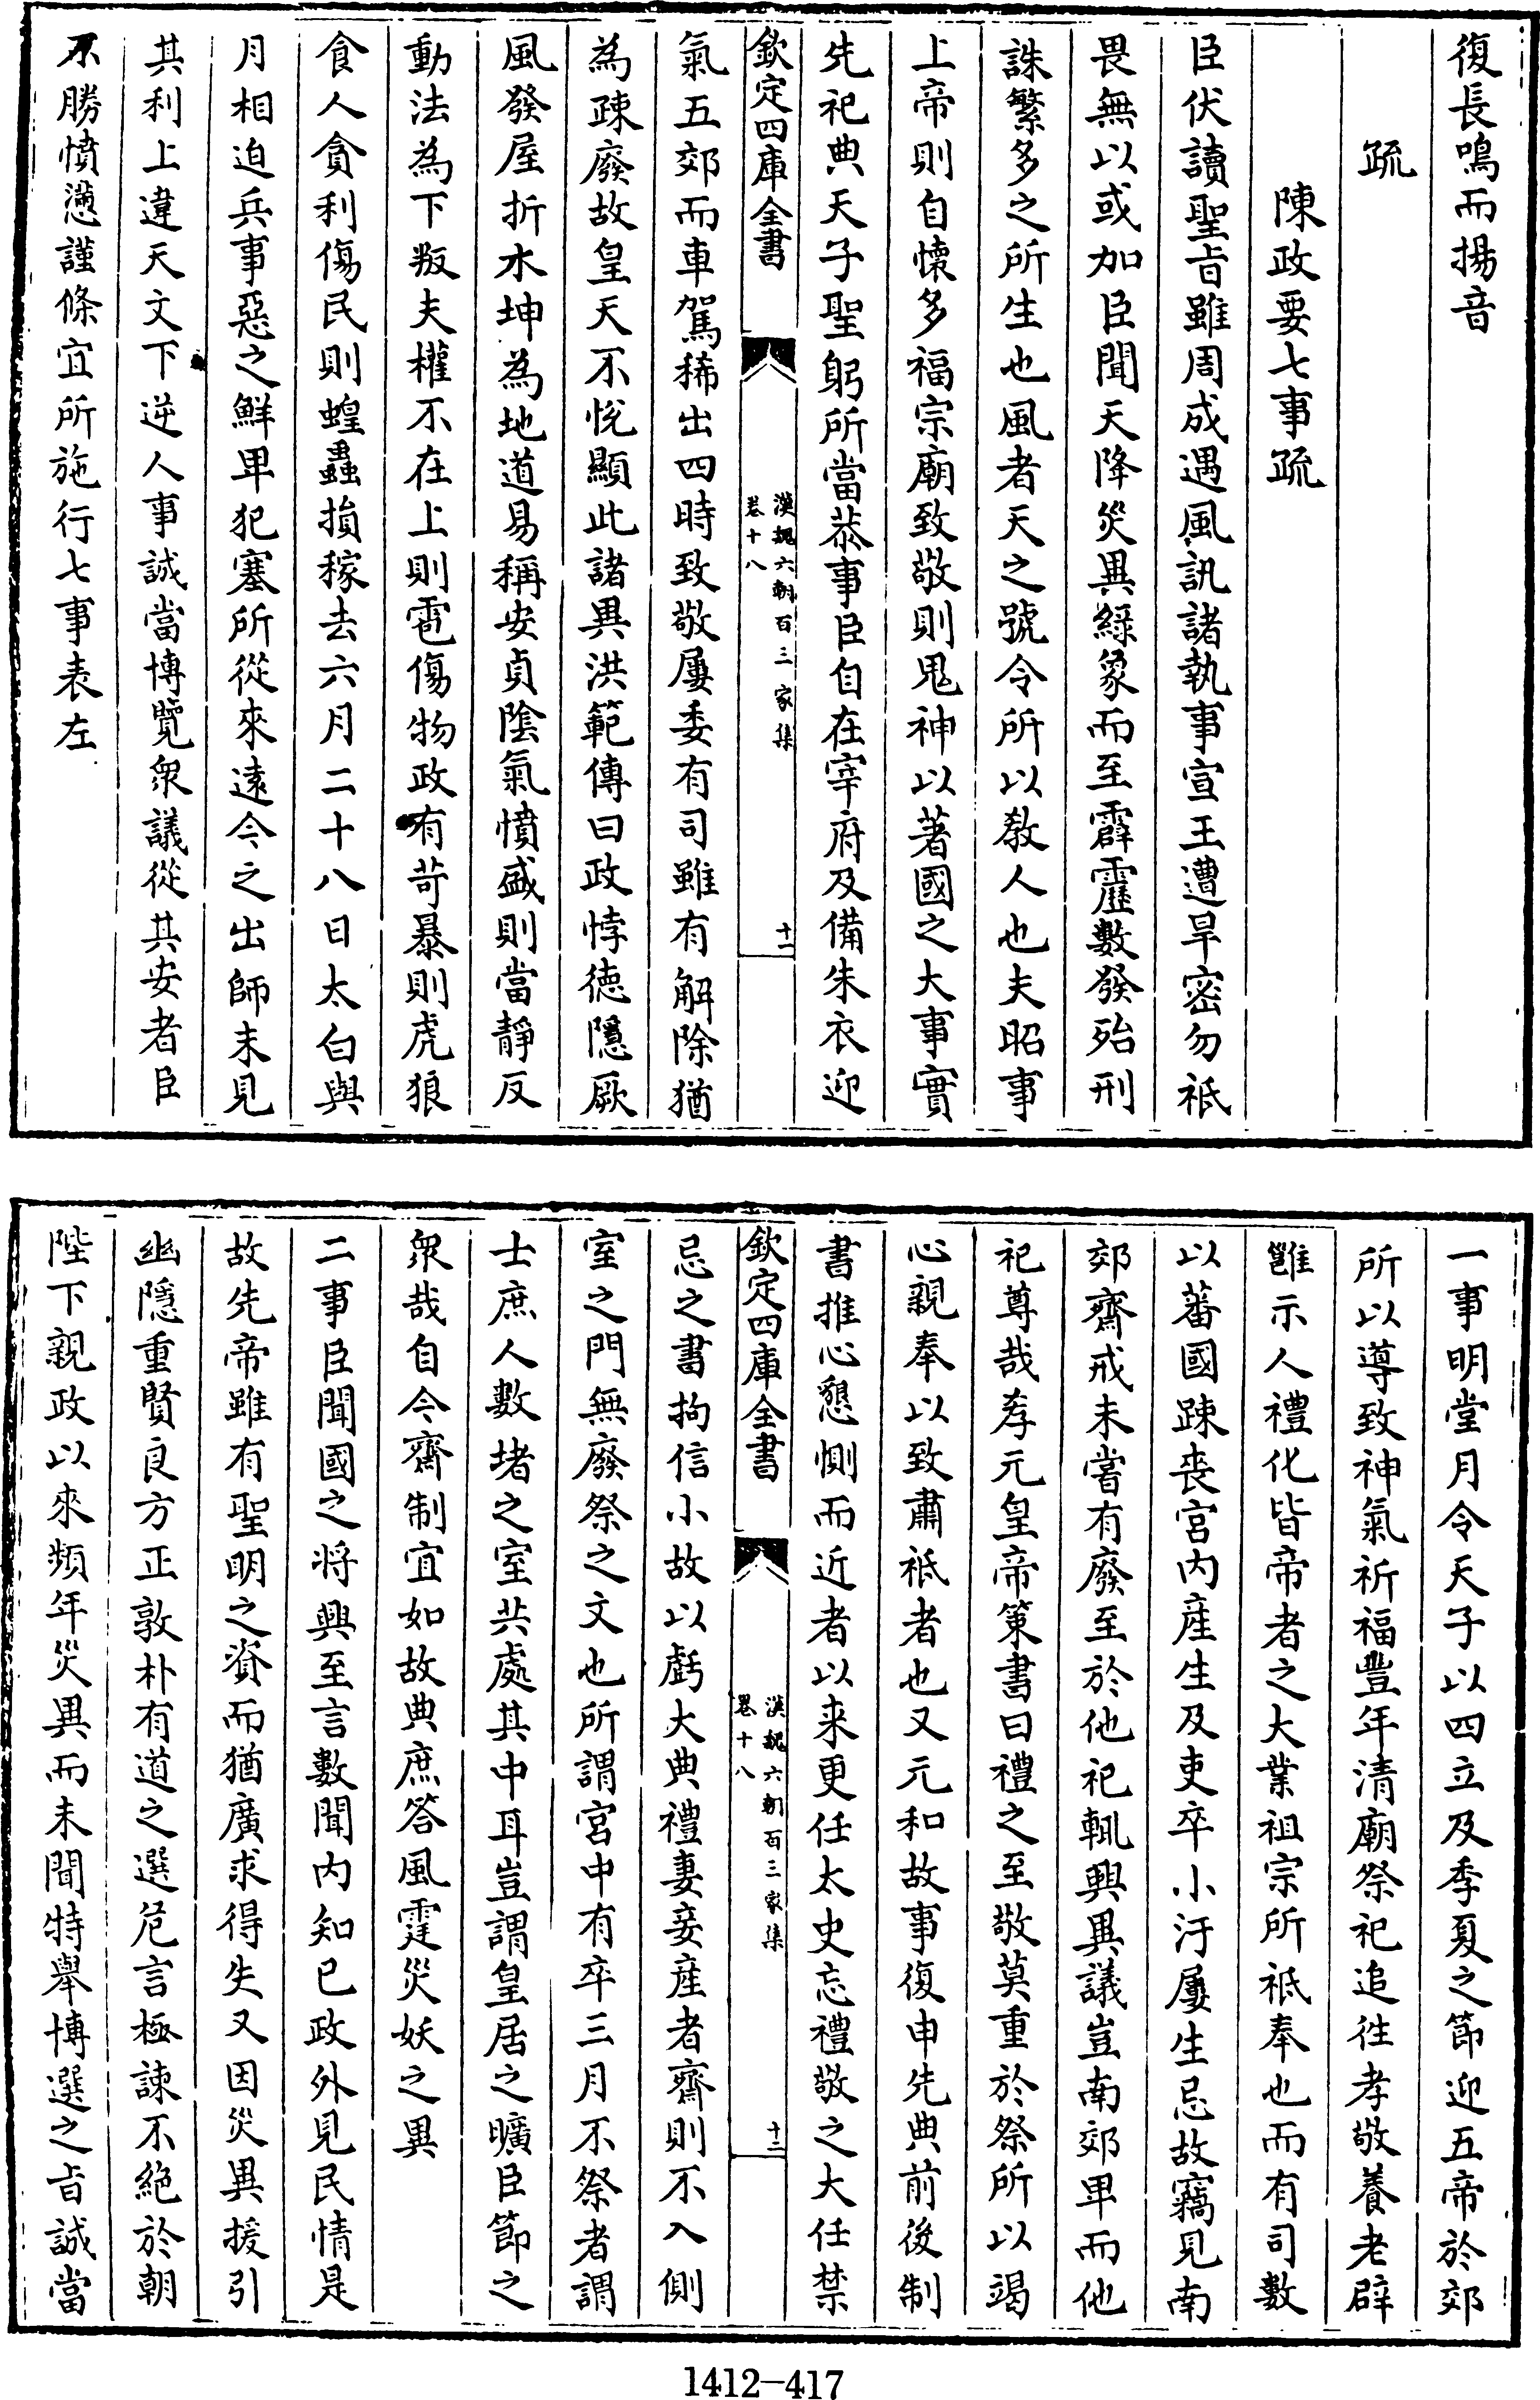 復長鳴而揚音
疏
陳政要七事疏
臣伏讀聖旨雖周成遇風訊諸執事宣王遭旱密勿祗
畏無以或加臣聞天降災異緣象而至霹靂數發殆刑
誅繁多之所生也風者天之號令所以敎人也夫昭事
上帝則自懷多福宗廟致敬則鬼神以著國之大事實
先祀典天子聖躬所當恭事臣自在宰府及備朱衣迎
欽定四庫全書
漢魏六朝百三家集
卷十八
十一
氣五郊而車駕稀出四時致敬屢委有司雖有解除猶
為疎廢故皇天不悅顯此諸異洪範傳曰政悖德隱厥
風發屋折木坤為地道易稱安貞陰氣憤盛則當靜反
動法為下叛夫權不在上則雹傷物政有苛暴則虎狼
食人貪利傷民則蝗蟲損稼去六月二十八日太白與
月相迫兵事惡之鮮卑犯塞所從來遠今之出師未見
其利上違天文下逆人事誠當博覽衆議從其安者臣
不勝憤懣謹條宜所施行七事表左
一事明堂月令天子以四立及季夏之節迎五帝於郊
所以導致神氣祈福豐年清廟祭祀追往孝敬養老辟
雝示人禮化皆帝者之大業祖宗所祗奉也而有司數
以蕃國疎喪宮內產生及吏卒小汙屢生忌故竊見南
郊齋戒未嘗有廢至於他祀輒興異議豈南郊卑而他
祀尊哉孝元皇帝策書曰禮之至敬莫重於祭所以竭
心親奉以致肅祗者也又元和故事復申先典前後制
書推心懇惻而近者以來更任太史忘禮敬之大任禁
欽定四庫全書
漢魏六朝百三家集
卷十八
十二
忌之書拘信小故以虧大典禮妻妾產者齋則不入側
室之門無廢祭之文也所謂宮中有卒三月不祭者謂
士庶人數堵之室共處其中耳豈謂皇居之曠臣節之
衆哉自今齋制宜如故典庶答風霆災妖之異
二事臣聞國之將興至言數聞內知已政外見民情是
故先帝雖有聖明之資而猶廣求得失又因災異援引
幽隱重賢良方正敦朴有道之選危言極諫不絕於朝
陛下親政以來頻年災異而未聞特舉博選之旨誠當
1412-417